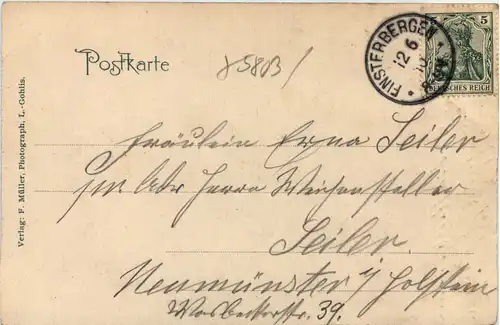 Postkarte
x5803/
FINSTERBERGEN
12 6
5
DEUTSCHES REICH
Verlag: F. Müller, Photograph, L.-Gohlis.
Fräulein Erna Seiler
per Adr Herrn Weichensteller
Seiler.
Neumünster i/ Holstein
Wasbeckerstr. 39.